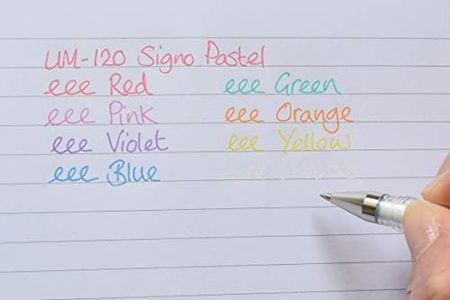 UM-120 Signo Pastel
eee Red eee Green
eee Pink eee Orange
eee Violet eee Yellow
eee Blue